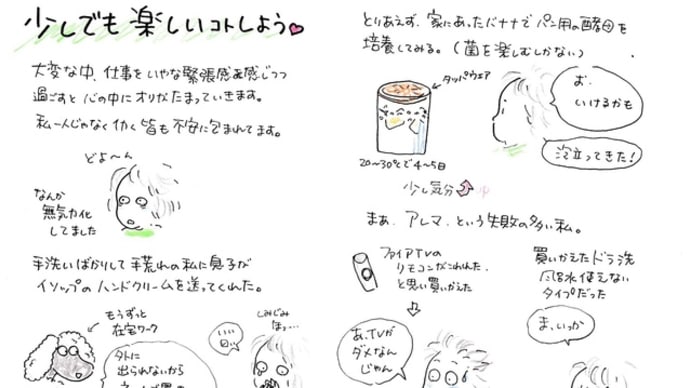 少しでも楽しいコトしよう
大変な中、仕事をいやな緊張感を感じつつ
過ごすと心の中にオリがたまっていきます。
私一人じゃなく働く皆も不安に包まれてます。
どよ〜ん
なんか
無気力化
してました
手洗いばかりして手荒れの私に息子が
イソップのハンドクリームを送ってくれた。
もうずっと
在宅ワーク
外に
出られないから
いい
しみじみ
ほっ…
とりあえず、家にあったバナナでパン用の酵母を
培養してみる。(菌を楽しむしかない)
タッパウエア
お、
いけるかも
泡立ってきた!
20〜30℃で4〜5日
少し気分
まぁ、アレマ、という失敗の多い私。
ファイアTVの
リモコンがこわれた、
と思い買いかえた
あ、TVが
ダメなん
じゃん
買いかえたドラ洗
風呂水使えない
タイプだった
ま、いっか